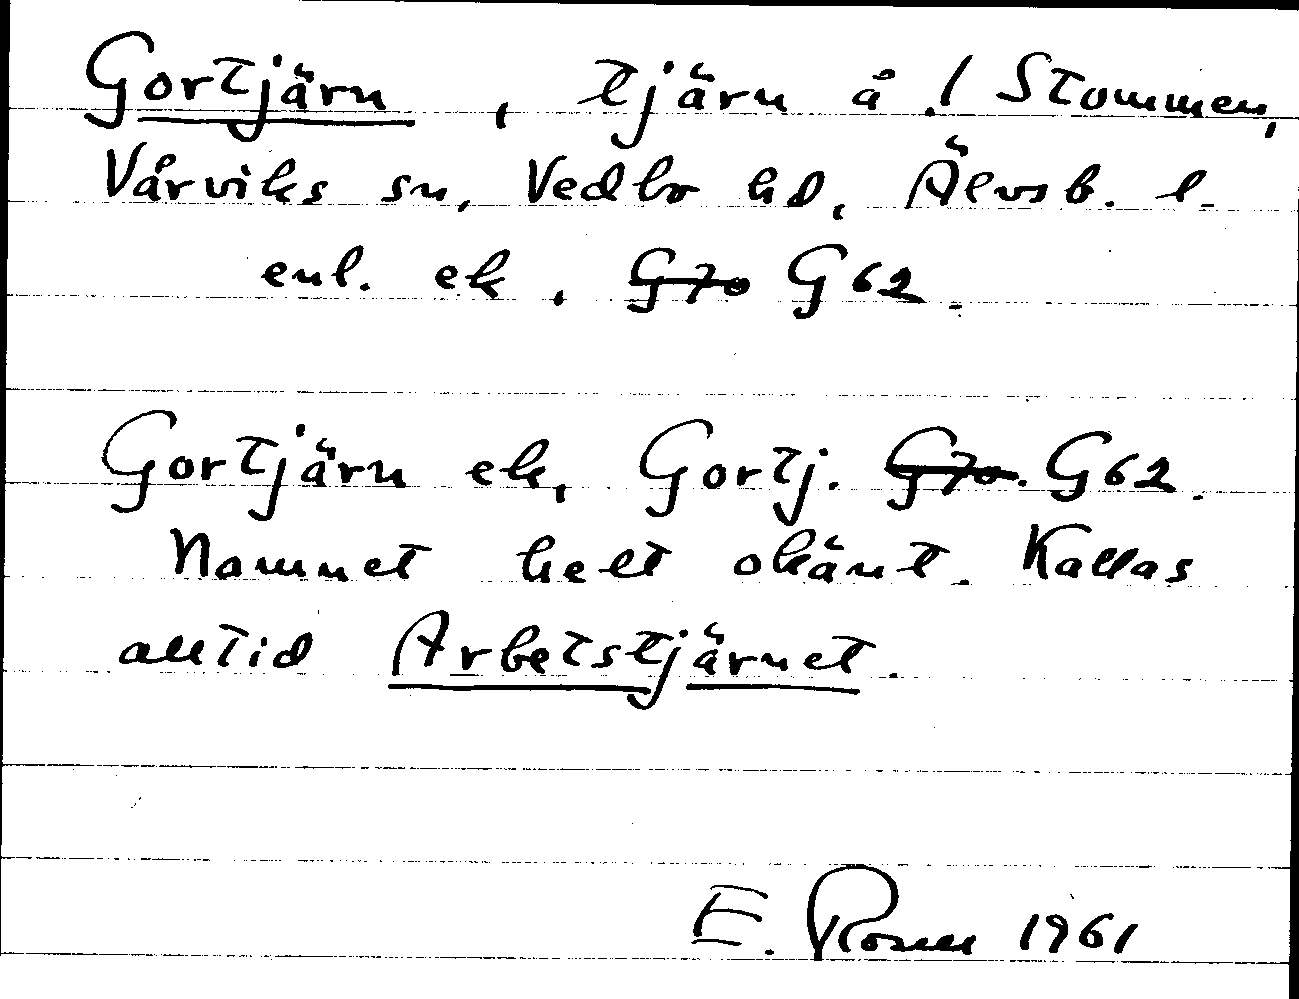 Gortjärn, tjärn å 1 Stommen,
Vårviks sn, Vedbo hd, Älvsb. l.
enl. ek. G70 G62.
Gortjärn ek, Gortj. G70. G62.
Namnet helt okänt. Kallas
alltid Arbetstjärnet.
E. Rosell 1961